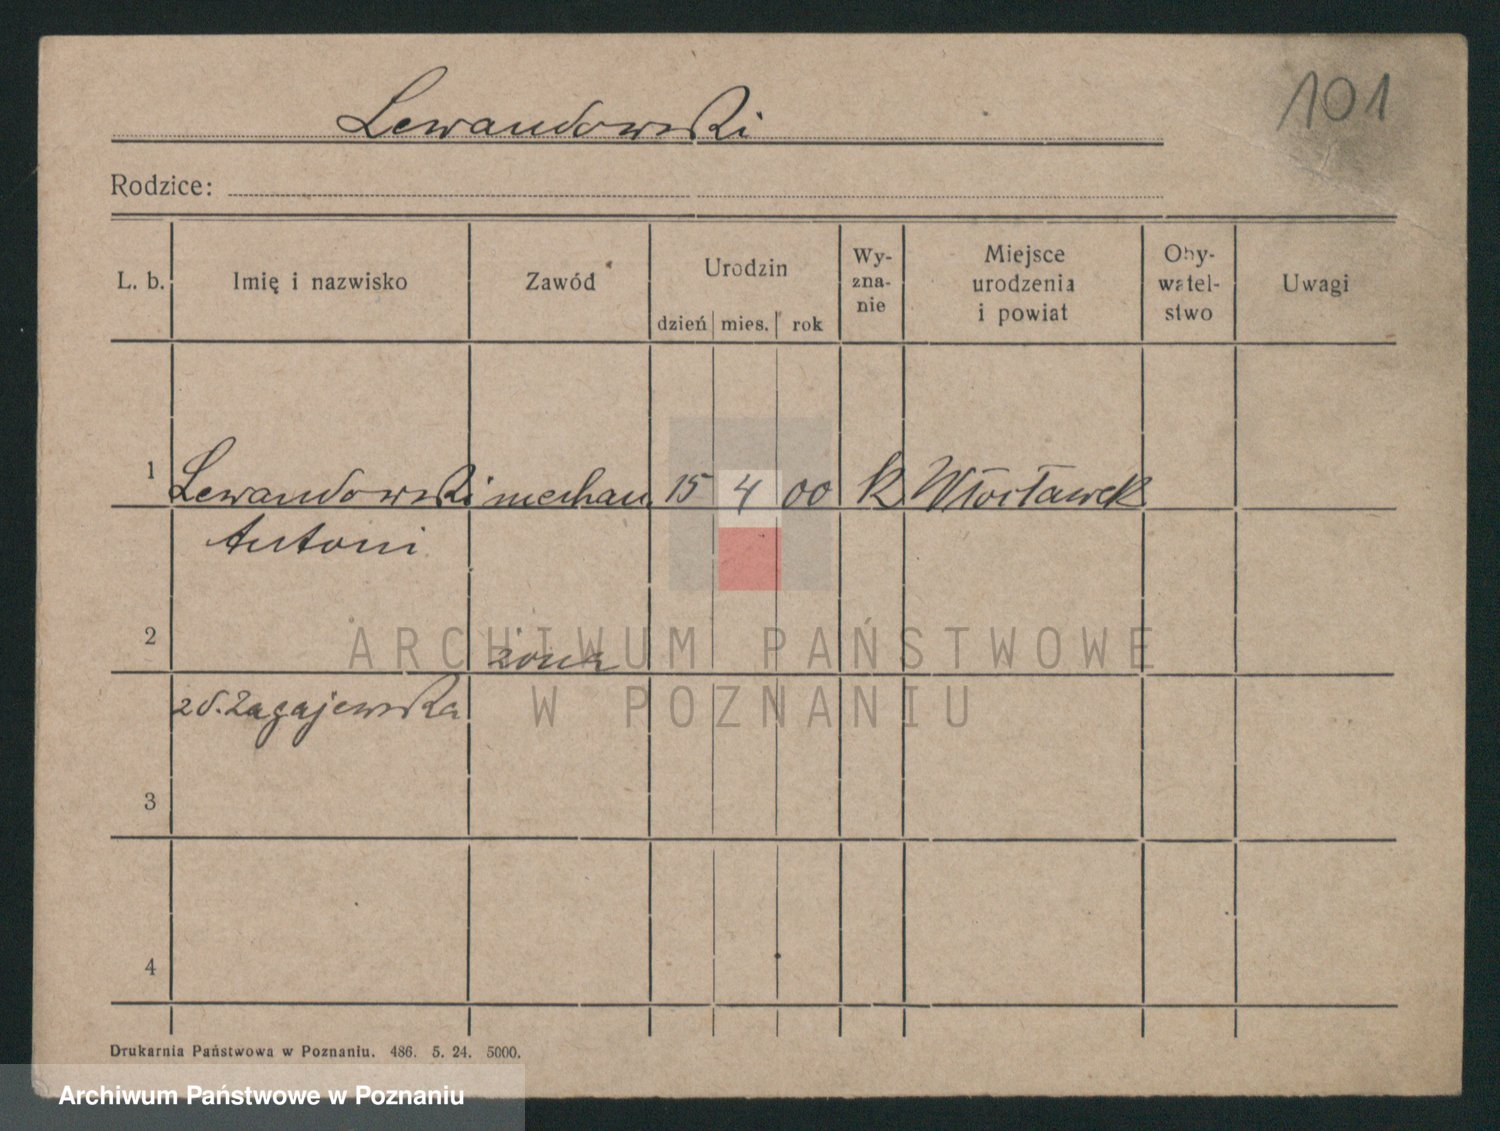 101
Lewandowski
Rodzice:
L. b. Imię i nazwisko Zawód Urodzin dzień mies. rok Wy-zna-nie Miejsce urodzenia i powiat Oby-watel-stwo Uwagi
1 Lewandowski mechan. 15 4 00 k Włocławek
Antoni
2 żona
zd. Zagajewska
3
4
ARCHIWUM PAŃSTWOWE
W POZNANIU
Drukarnia Państwowa w Poznaniu. 486. 5. 24. 5000.
Archiwum Państwowe w Poznaniu